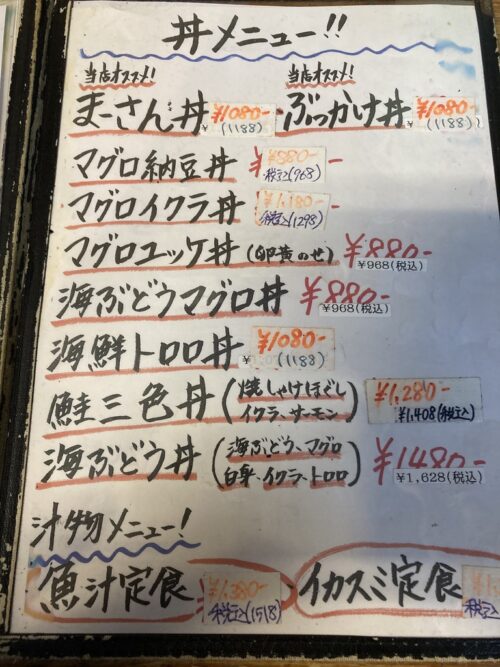 丼メニュー!!
当店オススメ! 当店オススメ!
まーさん丼 ¥1080- (1188) ぶっかけ丼 ¥1080- (1188)
マグロ納豆丼 ¥880- 税込(968)
マグロイクラ丼 ¥1,180- 税込(1298)
マグロユッケ丼(卵黄のせ) ¥880- ¥968(税込)
海ぶどうマグロ丼 ¥880- ¥968(税込)
海鮮トロロ丼 ¥1080- (1188)
鮭三色丼(焼しゃけほぐし イクラ、サーモン) ¥1,280- ¥1,408(税込)
海ぶどう丼(海ぶどう、マグロ 白身、イクラ、トロロ) ¥1480- ¥1,628(税込)
汁物メニュー!
魚汁定食 ¥1,380- 税込(1518) イカスミ定食